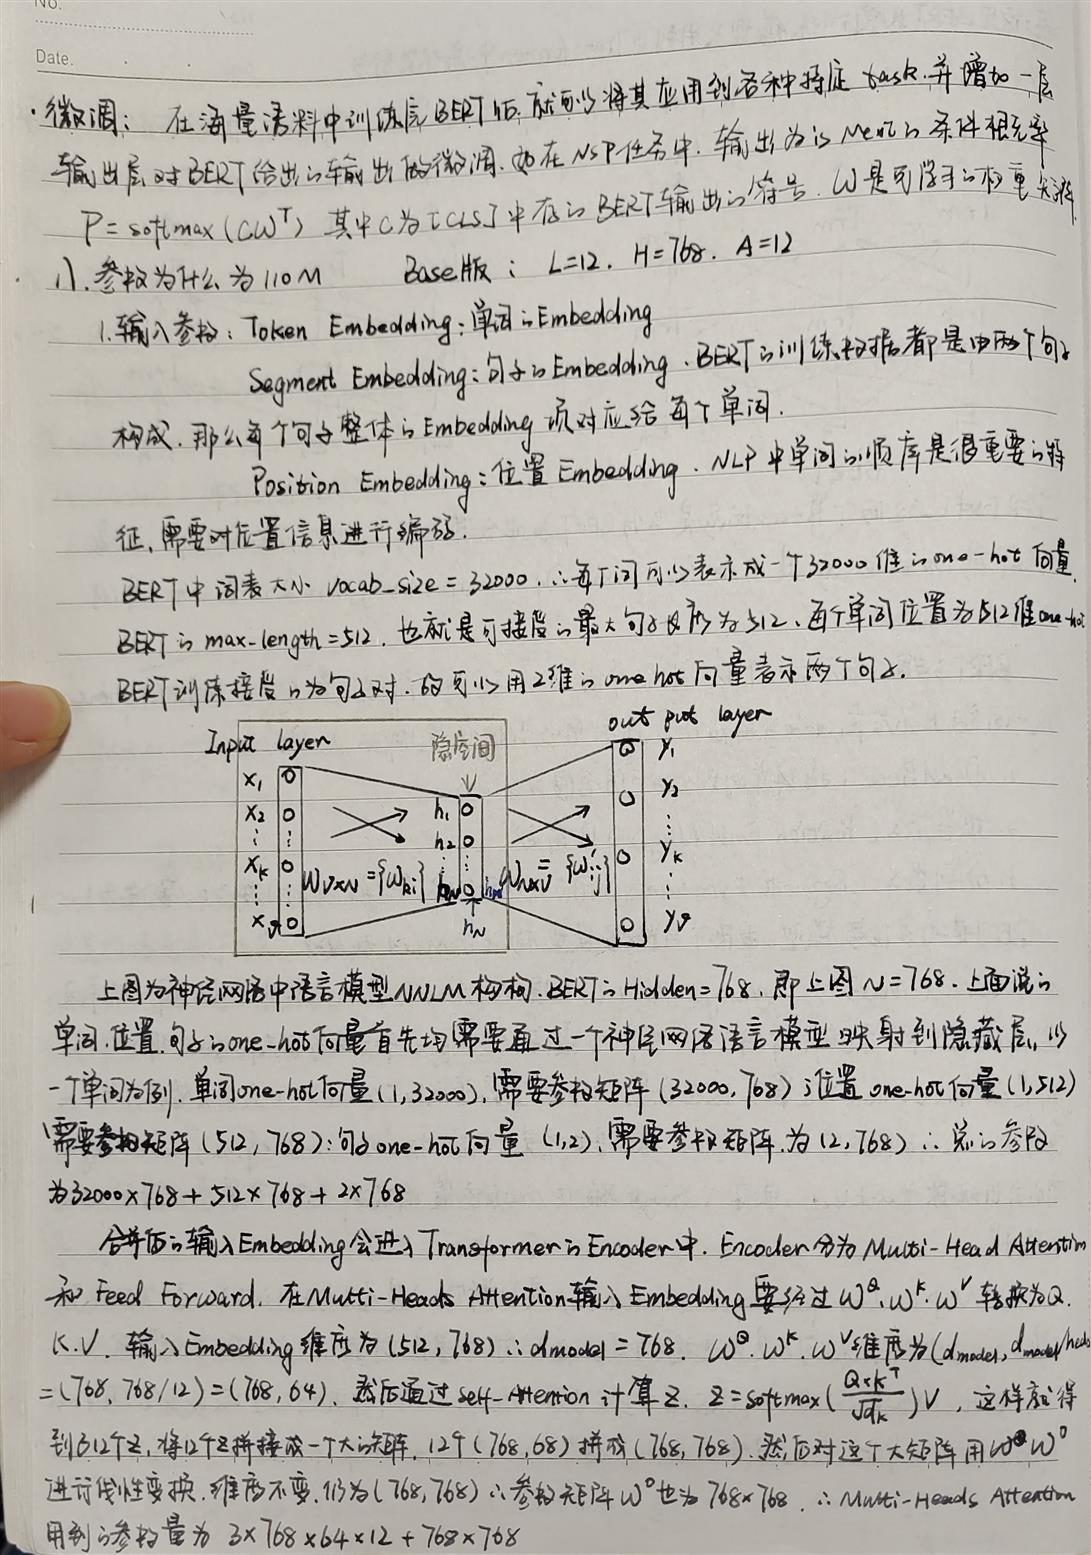 No.
Date.
· 微调：在海量语料中训练完BERT后,就可以将其应用到各种特定task.并增加一层
输出层对BERT给出的输出做微调.如在NSP任务中.输出为is Next的条件概率
P=softmax(CWᵀ) 其中C为[CLS]中存的BERT输出的符号.W是可学习的权重矩阵.
八.参数为什么为110M Base版: L=12. H=768. A=12
1.输入参数: Token Embedding:单词的Embedding
Segment Embedding:句子的Embedding.BERT的训练数据都是由两个句子
构成.那么每个句子整体的Embedding项对应给每个单词.
Position Embedding:位置Embedding.NLP中单词的顺序是很重要的特
征,需要对位置信息进行编码.
BERT中词表大小 vocab_size=32000.∴每个词可以表示成一个32000维的one-hot向量.
BERT的max-length=512.也就是可接受的最大句子长度为512、每个单词位置为512维one-hot
BERT训练接受的为句子对.故可以用2维的one hot向量表示两个句子.
Input layer 隐层间 out put layer
x₁ h₁ y₁
x₂ h₂ y₂
xₖ W_V×N={w_ki} h_N W_N×V={w'_ij} yₖ
x_v h_N y_v
上图为神经网络中语言模型NNLM构构.BERT的Hidden=768.即上图N=768.上面说的
单词.位置.句子的one-hot向量首先均需要通过一个神经网络语言模型映射到隐藏层,以
一个单词为例.单词one-hot向量(1,32000),需要参数矩阵(32000,768);位置one-hot向量(1,512)
需要参数矩阵(512,768);句子one-hot向量(1,2),需要参数矩阵为(2,768)∴总的参数
为32000×768+512×768+2×768
合并后的输入Embedding会进入Transformer的Encoder中.Encoder分为Multi-Head Attention
和Feed Forward.在Multi-Heads Attention输入Embedding要经过W^Q.W^K.W^V转换为Q.
K.V.输入Embedding维度为(512,768)∴dmodel=768. W^Q.W^K.W^V维度为(d_model,d_model/heads
=(768,768/12)=(768,64).然后通过self-Attention计算Z. Z=softmax(Q×Kᵀ/√dₖ)V,这样就得
到了12个Z,将12个Z拼接成一个大的矩阵.12个(768,68)拼成(768,768).然后对这个大矩阵用W^O
进行线性变换.维度不变.仍为(768,768)∴参数矩阵W^O也为768×768.∴Multi-Heads Attention
用到的参数量为 3×768×64×12+768×768